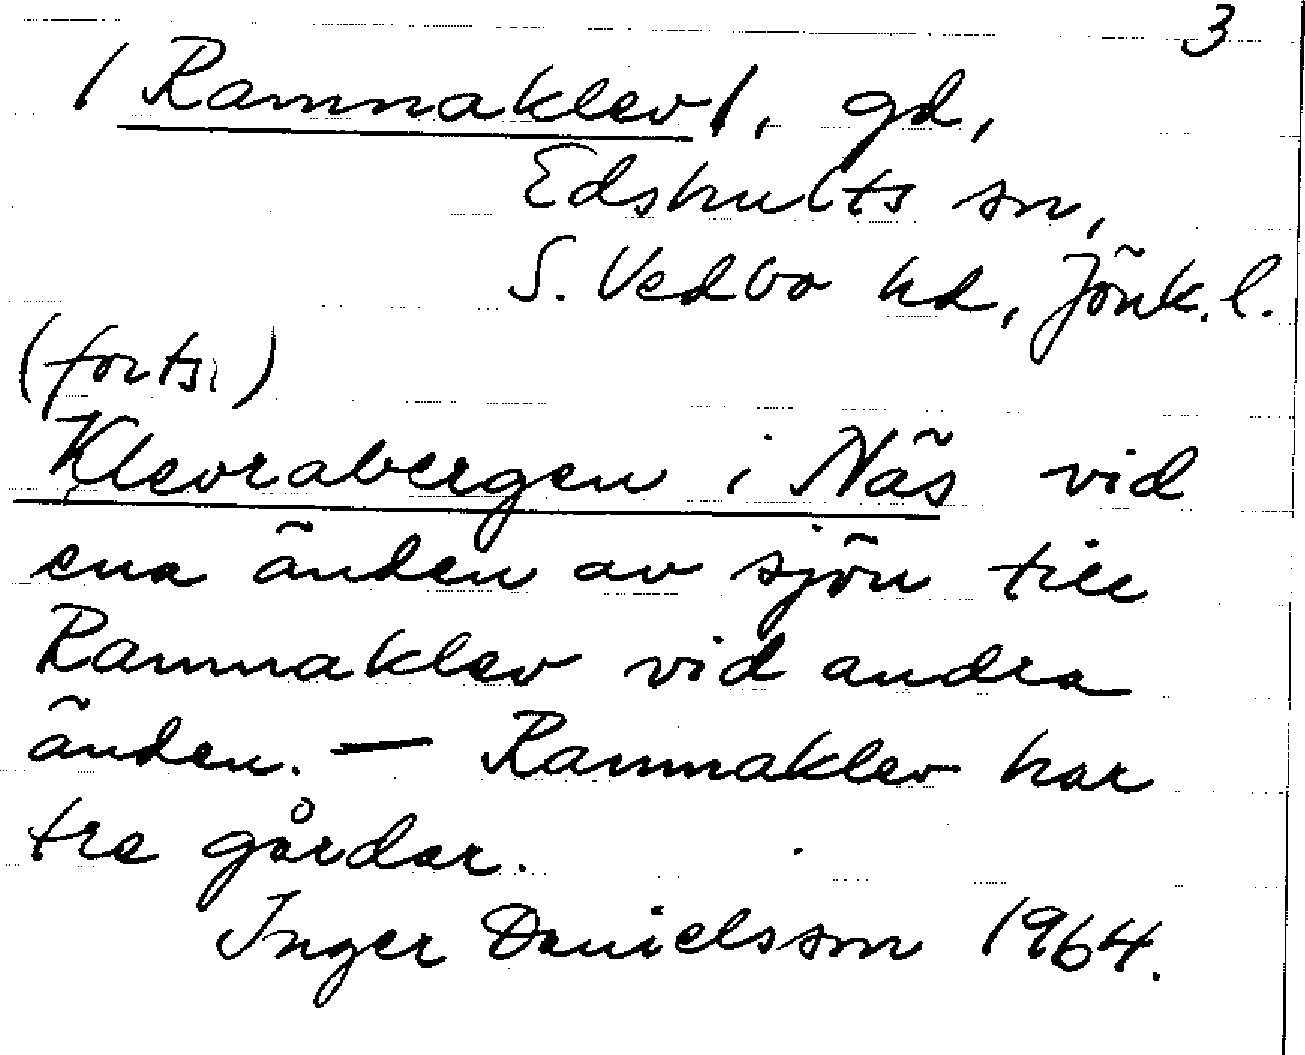 3
/Ramnaklev/, gd,
Edshults sn,
S. Vedbo hd, Jönk. l.
(forts.)
Klevrabergen i Näs vid
ena änden av sjön till
Ramnaklev vid andra
änden. — Ramnaklev har
tre gårdar.
Inger Danielsson 1964.